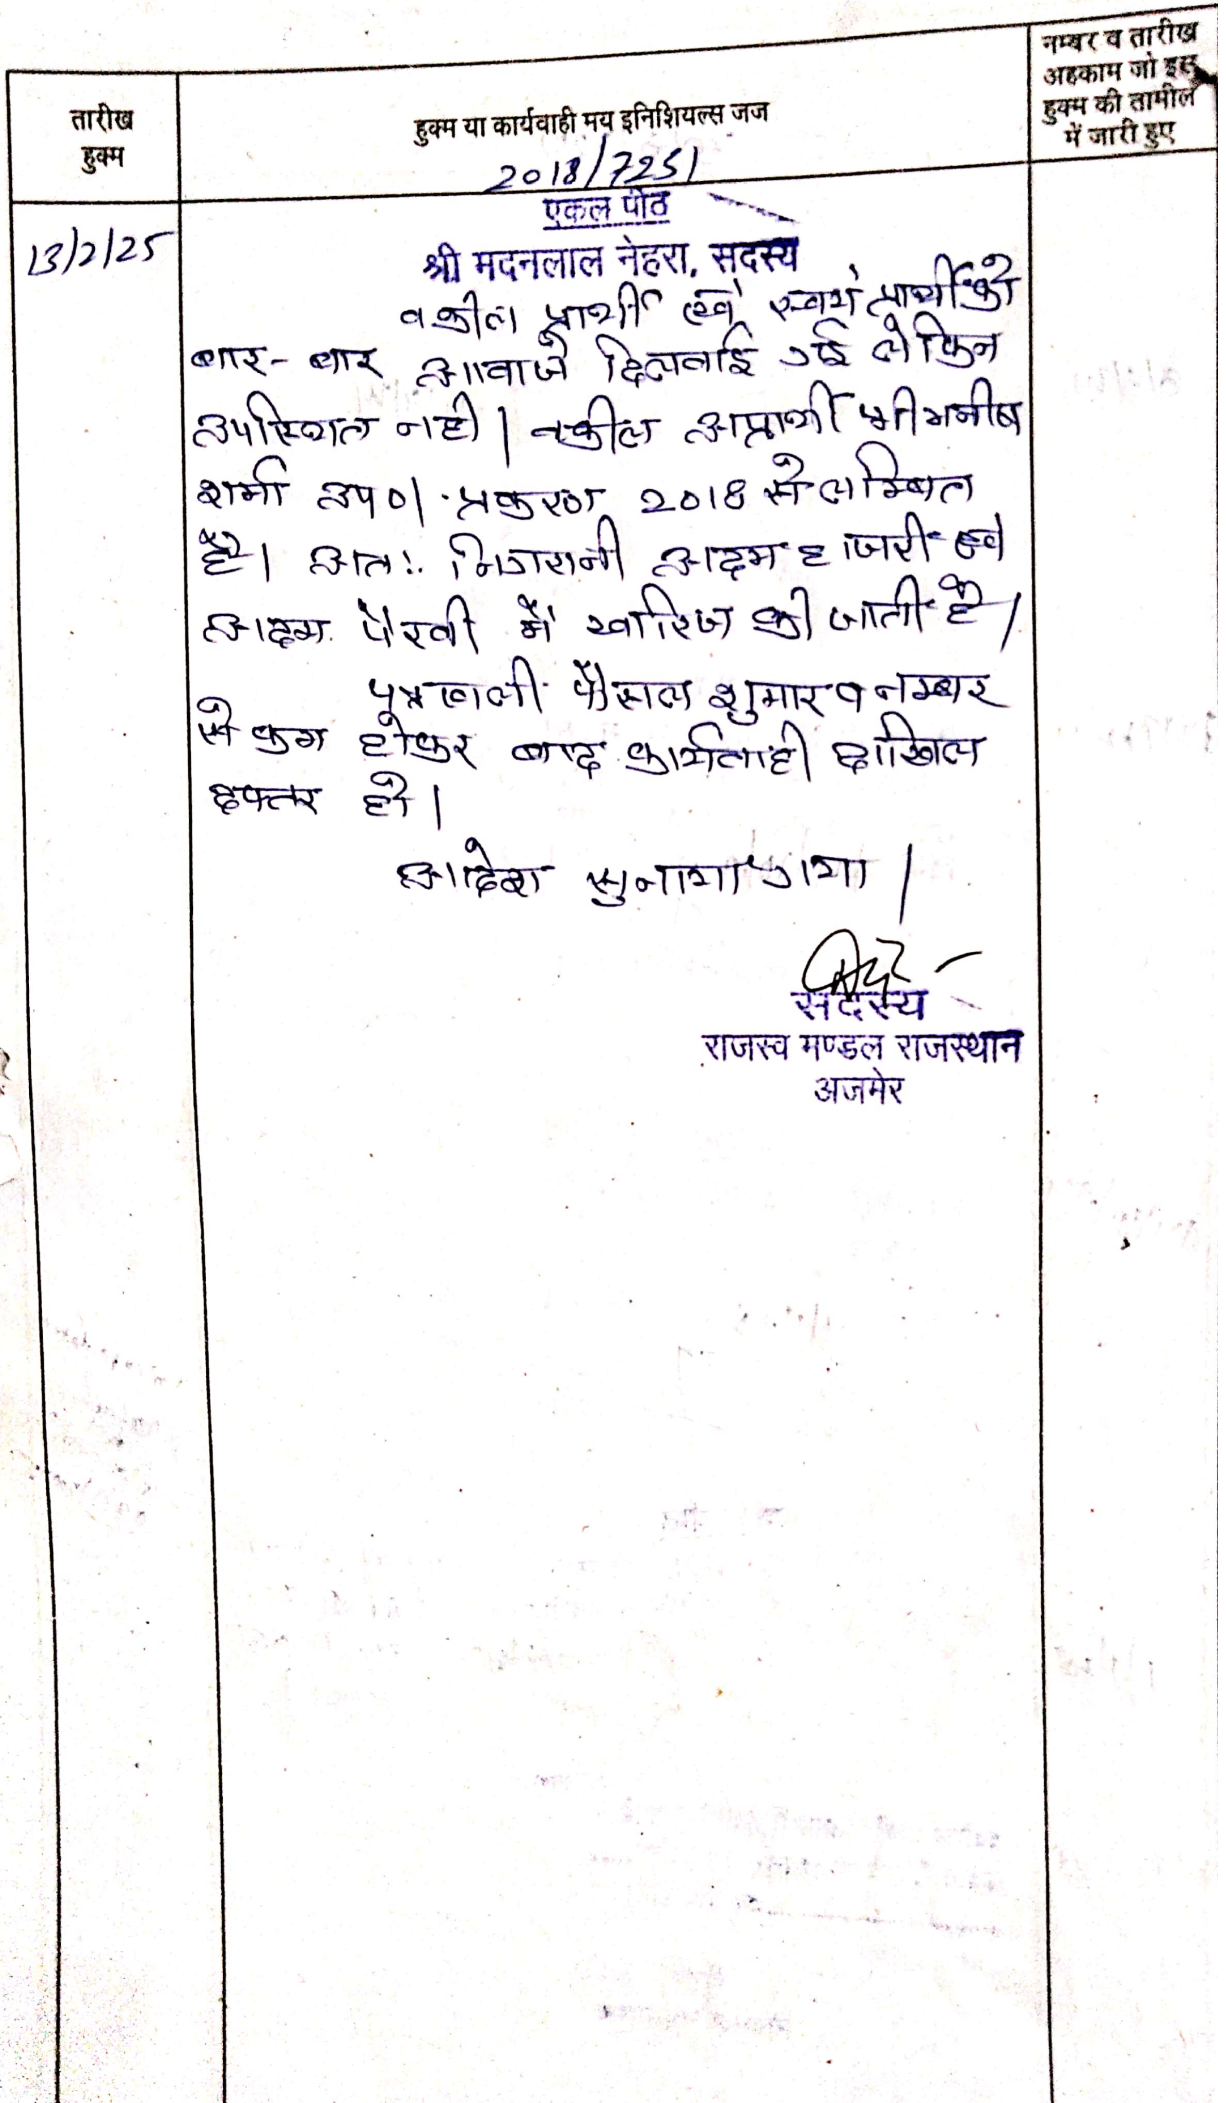 तारीख
हुक्म
हुक्म या कार्यवाही मय इनिशियल्स जज
नम्बर व तारीख
अहकाम जो इस
हुक्म की तामील
में जारी हुए
2018/7251
एकल पीठ
13/2/25
श्री मदनलाल नेहरा, सदस्य
वकील प्रार्थी एवं स्वयं प्रार्थी को
बार-बार आवाजे दिलवाई गई लेकिन
उपस्थित नही। वकील अप्रार्थी श्री मनीष
शर्मा उप०। प्रकरण 2018 से लम्बित
है। अतः निगरानी अदम हाजरी एवं
अदम पैरवी में खारिज की जाती है।
पत्रावली फैसल शुमार व नम्बर
से कम होकर बाद कार्यवाही दाखिल
दफ्तर हो।
आदेश सुनाया गया।
सदस्य
राजस्व मण्डल राजस्थान
अजमेर